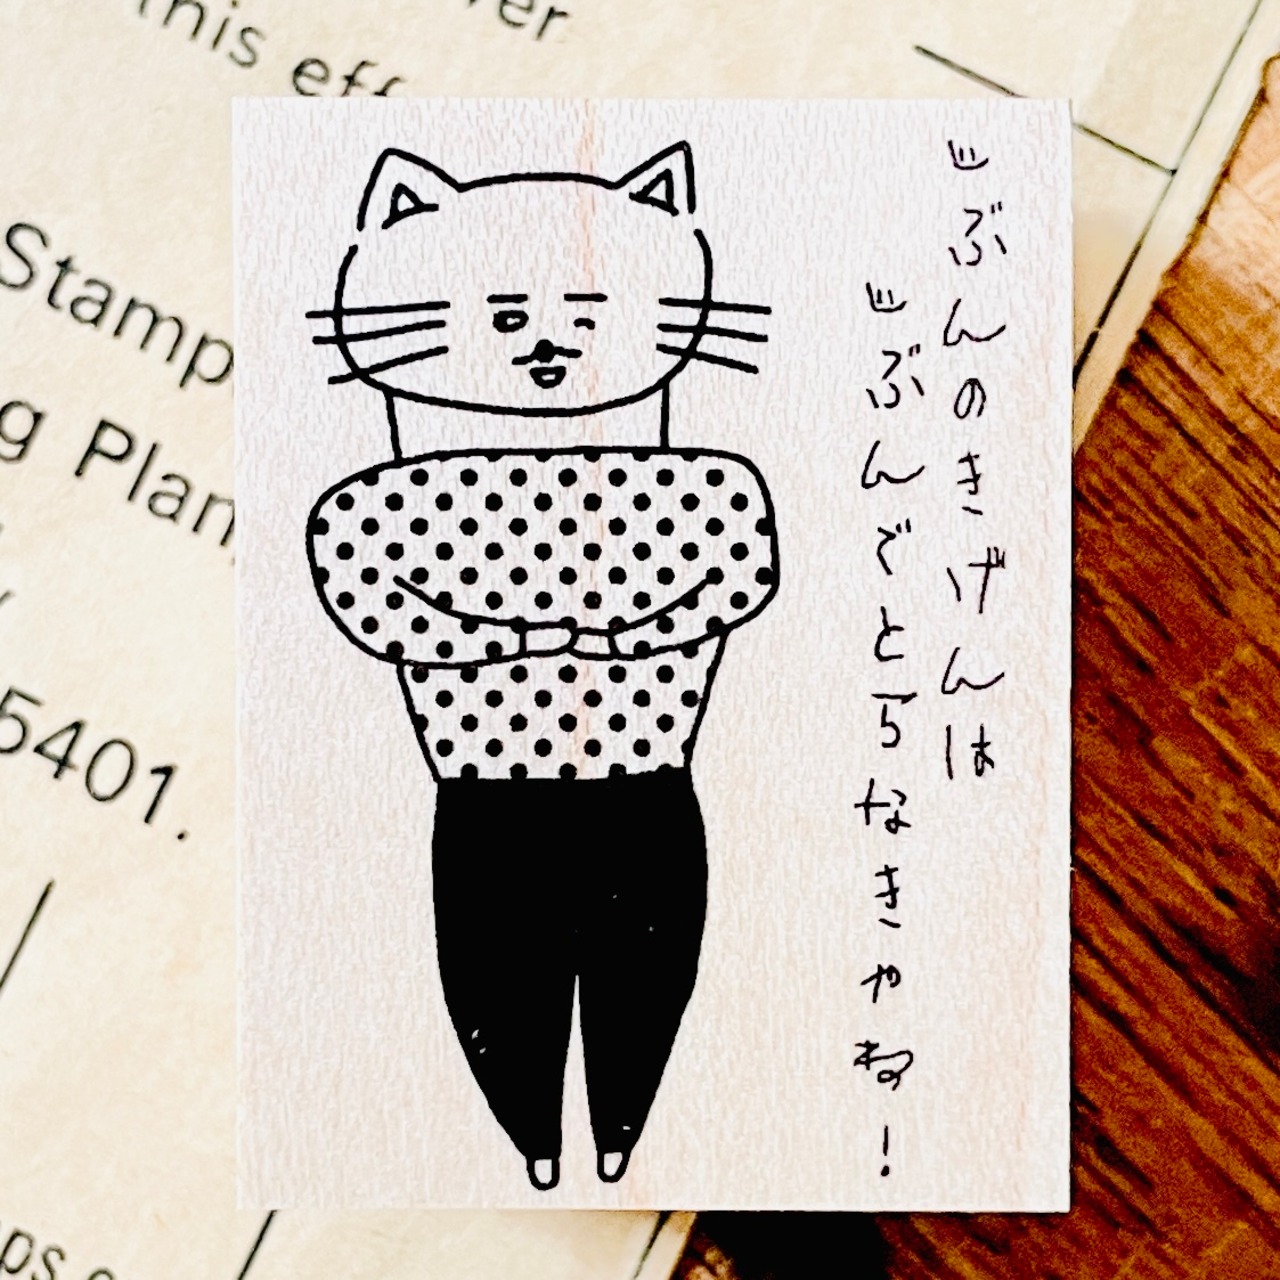 じぶんのきげんは
じぶんでとらなきゃね!
this eff
er
Stamp
g Plan
5401.